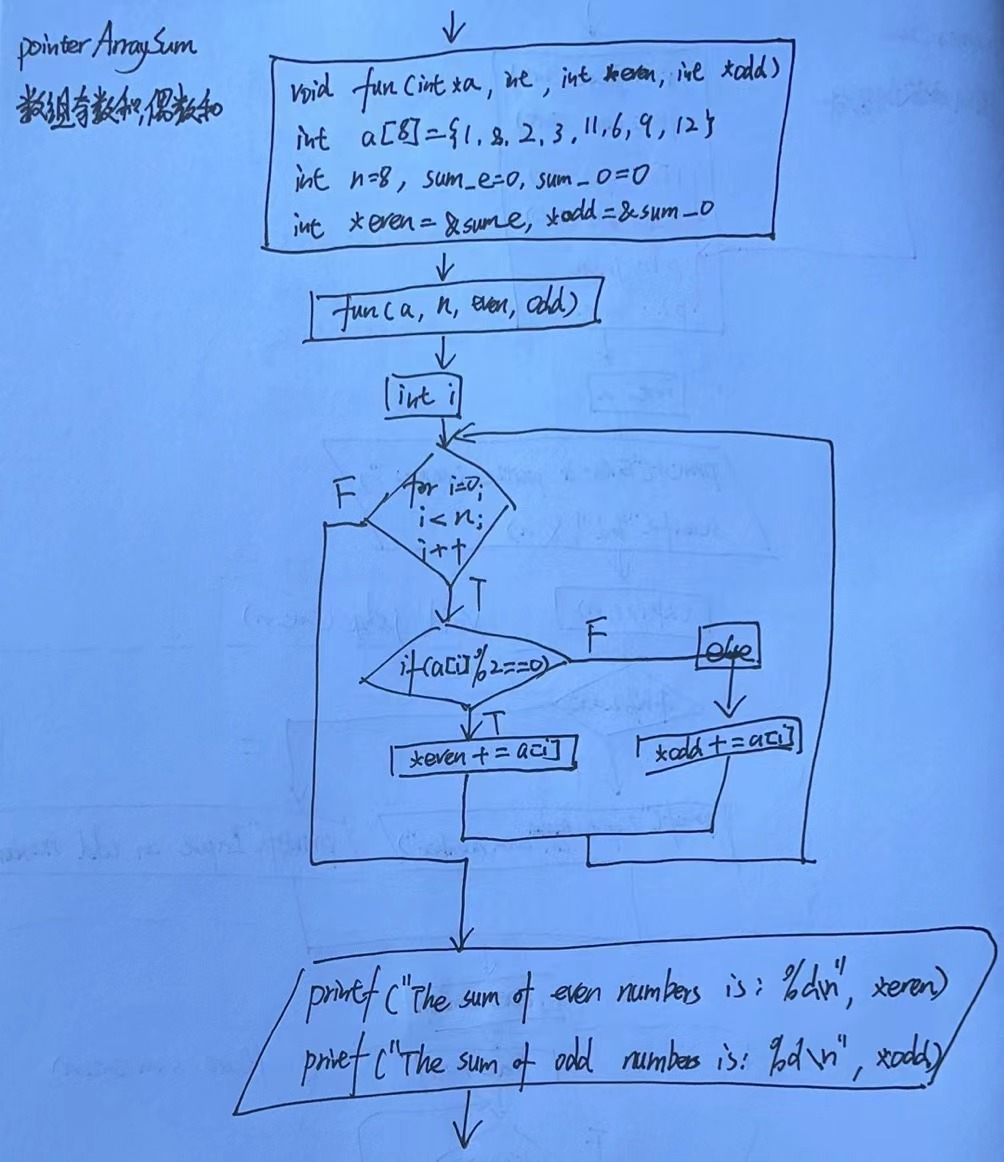 pointer ArraySum
数组奇数和,偶数和
void fun(int *a, int , int *even, int *odd)
int a[8]={1, 8, 2, 3, 11, 6, 9, 12}
int n=8, sum_e=0, sum_o=0
int *even=&sume, *odd=&sum_o
fun(a, n, even, odd)
int i
for i=0;
i<n;
i++
F
T
if(a[i]%2==0)
F
else
T
*even+=a[i]
*odd+=a[i]
printf("The sum of even numbers is: %d\n", *even)
printf("The sum of odd numbers is: %d\n", *odd)